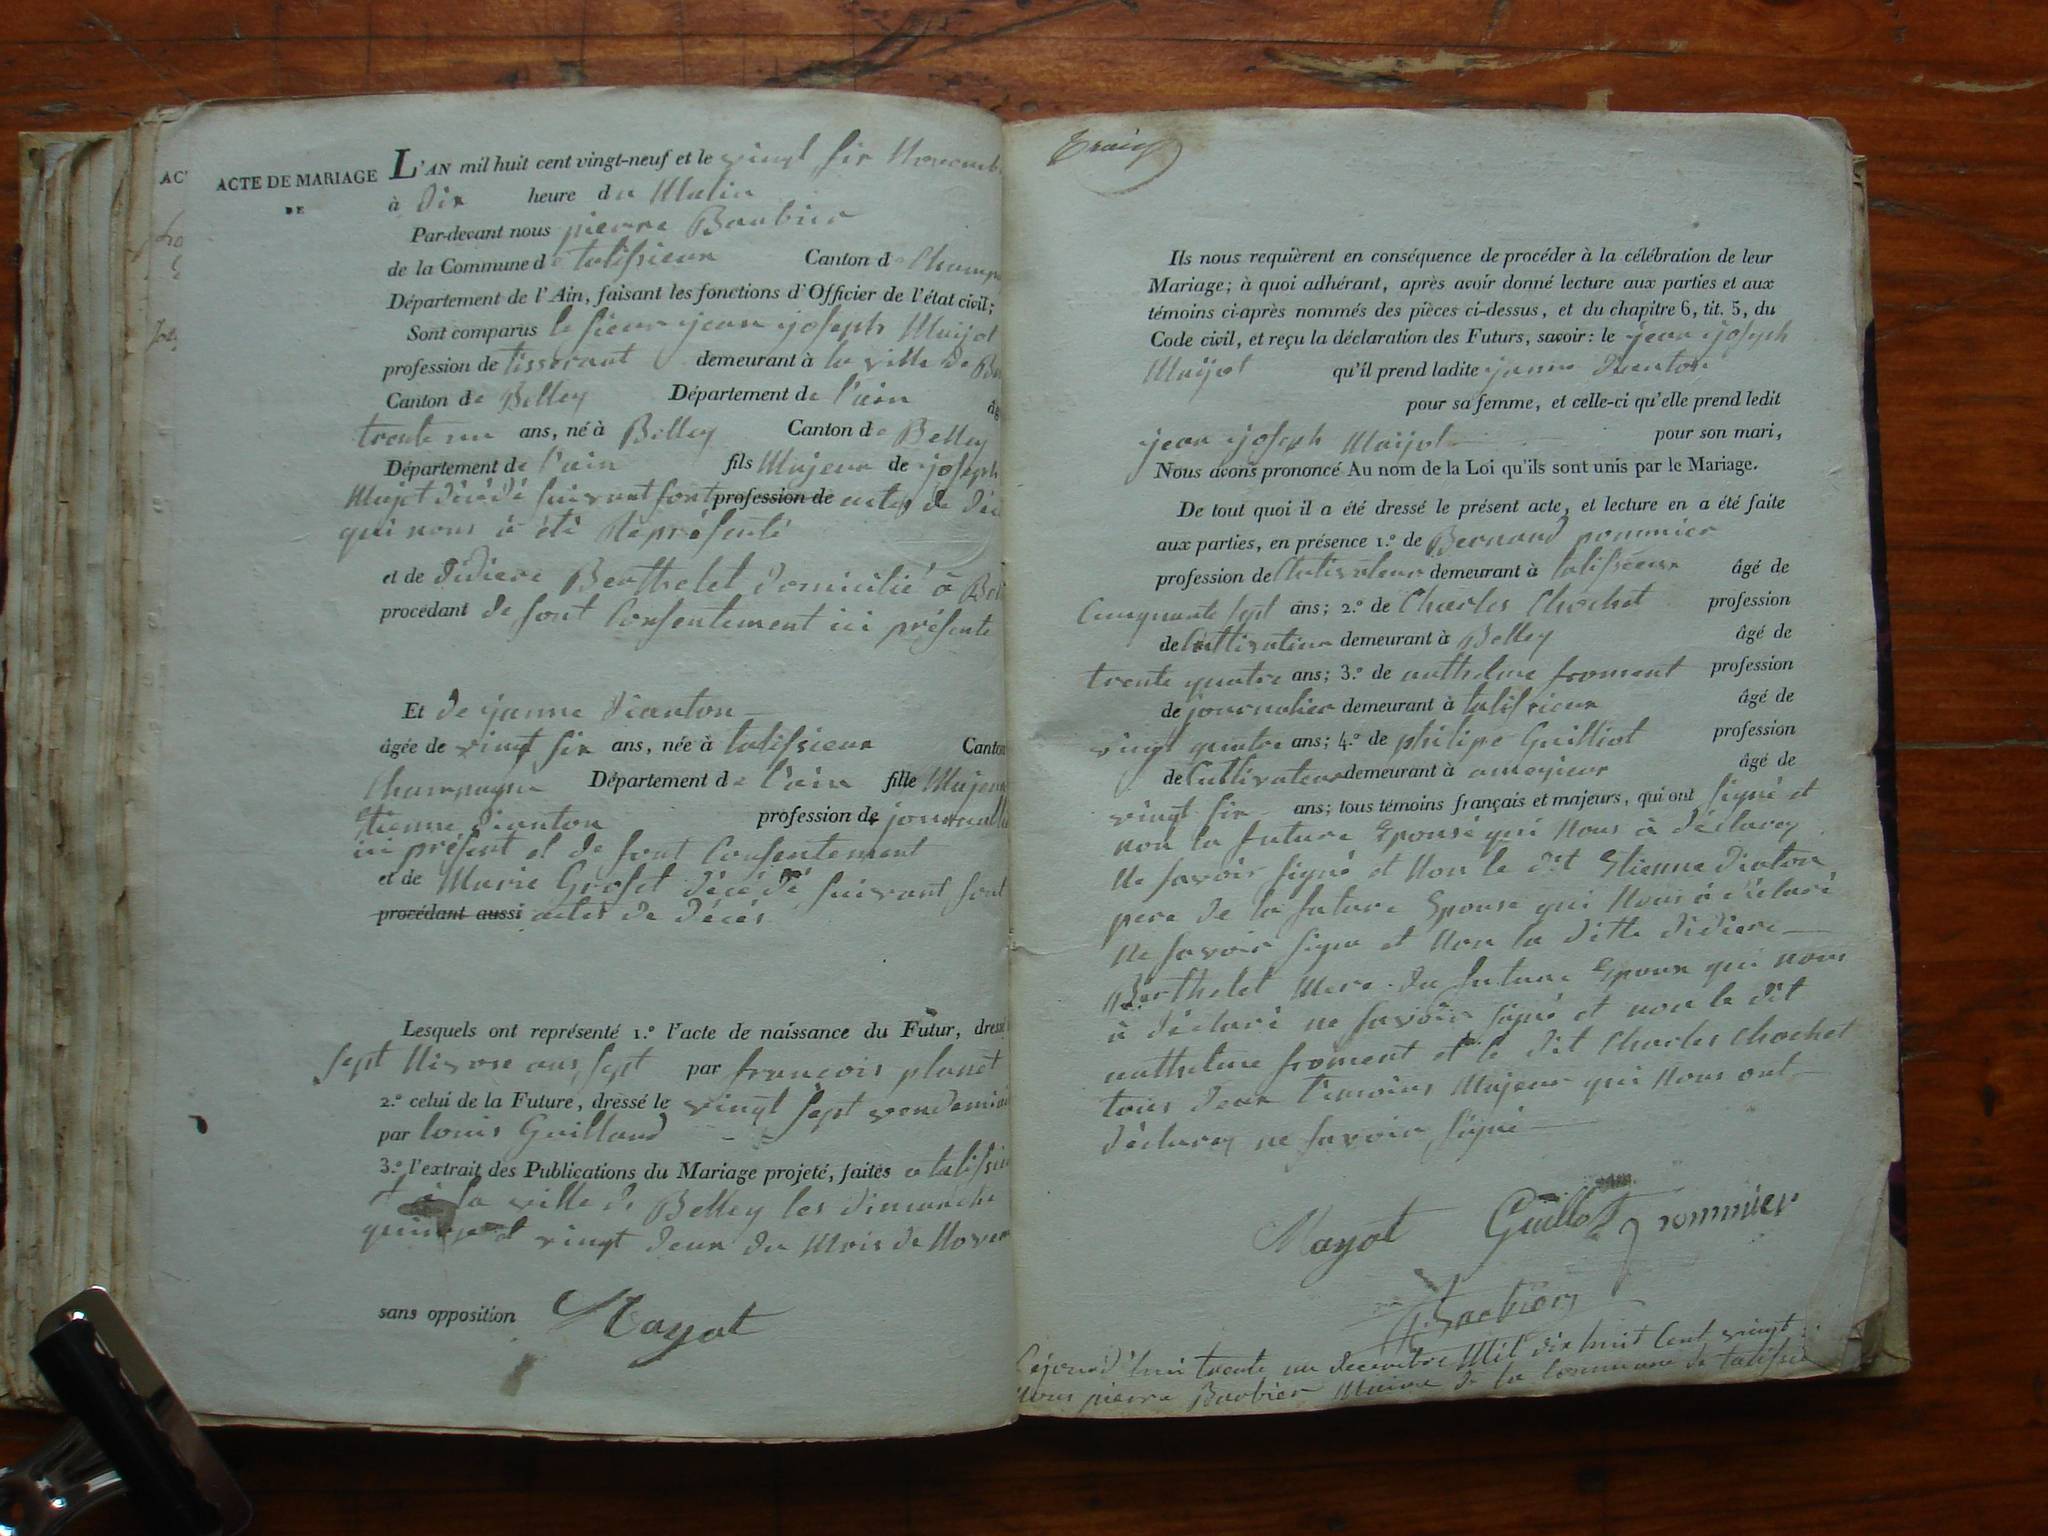 AC'
ACTE DE MARIAGE
DE
L'AN mil huit cent vingt-neuf et le vingt six Novemb
à Dix heure du Matin
Par-devant nous pierre Barbier
de la Commune de talissieux Canton de Champ
Département de l'Ain, faisant les fonctions d'Officier de l'état civil;
Sont comparus le sieur jean joseph Maijot
profession de tisserant demeurant à la ville de B
Canton de Belley Département de l'ain âg
trente un ans, né à Belley Canton de Belley
Département de l'ain fils Majeur de joseph
Majot décédé suivant sont profession de actes de Déc
qui nous à été Représenté
et de Didiere Berthelet Domicilié à Bel
procédant de sont Consentement ici présente
Et de janne Dianton
âgée de vingt six ans, née à talissieux Canton
Champagne Département de l'ain fille Majeur
Etienne Dianton profession de journal
ici présent et de sont Consentement
et de Marie Groset décédé suivant sont
procédant aussi actes de décès
Lesquels ont représenté 1.° l'acte de naissance du Futur, dressé
sept Nivose ans sept par francois planet
2.° celui de la Future, dressé le vingt sept vendemiai
par louis Guilland
3.° l'extrait des Publications du Mariage projeté, faites a talissieu
à la ville de Belley les dimanche
quinze et vingt deux du Mois de Novem
sans opposition Mayot
Ils nous requièrent en conséquence de procéder à la célébration de leur
Mariage; à quoi adhérant, après avoir donné lecture aux parties et aux
témoins ci-après nommés des pièces ci-dessus, et du chapitre 6, tit. 5, du
Code civil, et reçu la déclaration des Futurs, savoir: le jean joseph
Maijot qu'il prend ladite janne Dianton
pour sa femme, et celle-ci qu'elle prend ledit
jean joseph Maijot pour son mari,
Nous avons prononcé Au nom de la Loi qu'ils sont unis par le Mariage.
De tout quoi il a été dressé le présent acte, et lecture en a été faite
aux parties, en présence 1.° de Bernard pommier
profession de Cultivateur demeurant à talissieux âgé de
Cinquante sept ans; 2.° de Charles Chochet profession
de Cultivateur demeurant à Belley âgé de
trente quatre ans; 3.° de anthelme froment profession
de journalier demeurant à talissieux âgé de
vingt quatre ans; 4.° de philipe Guilliot profession
de Cultivateur demeurant à ameysieux âgé de
vingt six ans; tous témoins français et majeurs, qui ont signé et
non la future Epouse qui Nous à déclarez
Ne savoir signé et Non le dit Etienne Diaton
pere de la future Epouse qui Nous à déclaré
Ne savoir signe et Non la ditte didiere
Berthelet Mere du future Epoux qui nous
à déclaré ne savoir signé et non le dit
anthelme froment et le dit Charles Chochet
tous deux témoins Majeur qui Nous ont
déclarez ne savoir signé
Mayot Guilliot pommier
Barbier
Cejourd'hui trente un decembre Mil dix huit Cent vingt
Nous pierre Barbier Maire de la Commune de talissie